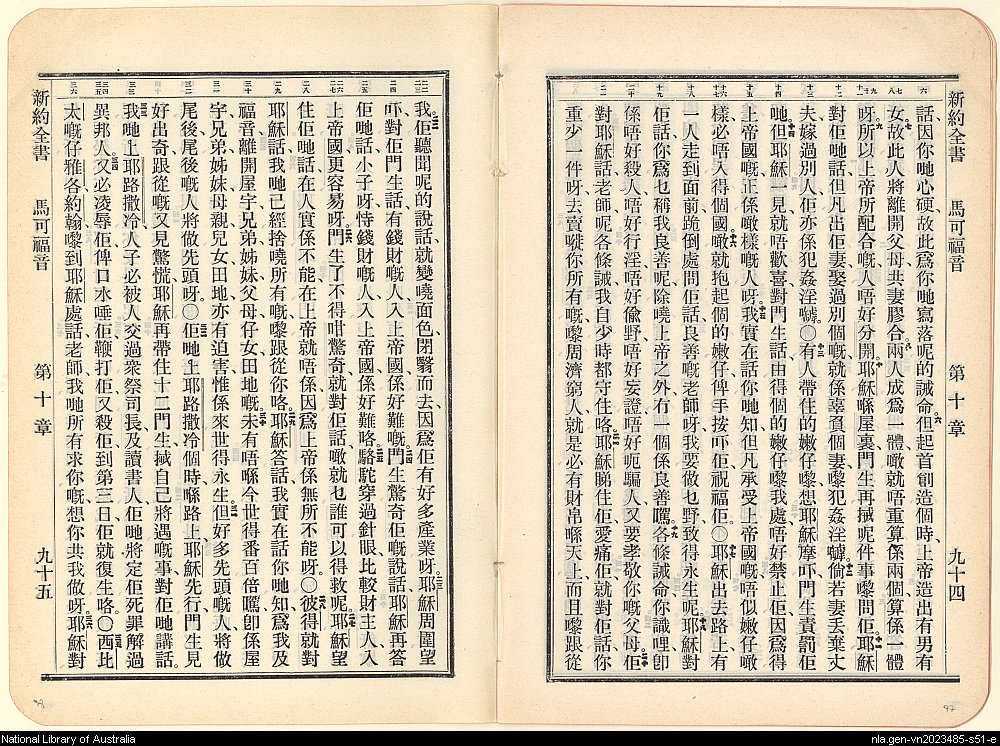 新約全書 馬可福音 第十章 九十四
話因你哋心硬故此爲你哋寫落呢的誡命但起首創造個時上帝造出有男有
女故此人將離開父母共妻膠合兩人成爲一體噉就唔重算係兩個算係一體
呀所以上帝所配合嘅人唔好分開耶穌喺屋裏門生再揻呢件事嚟問佢耶穌
對佢哋話但凡出佢妻娶過別個嘅就係辜負個妻嚟犯姦淫㗎倘若妻丢棄丈
夫嫁過別人佢亦係犯姦淫㗎〇有人帶住的嫩仔嚟想耶穌摩吓門生責罰佢
哋但耶穌一見就唔歡喜對門生話由得個的嫩仔嚟我處唔好禁止佢因爲得
上帝國嘅正係噉樣嘅人呀我實在話你哋知但凡承受上帝國嘅唔似嫩仔噉
樣必唔入得個國噉就抱起個的嫩仔俾手按吓佢祝福佢〇耶穌出去路上有
一人走到面前跪倒處問佢話良善嘅老師呀我要做乜野致得永生呢耶穌對
佢話你爲乜稱我良善呢除嘵上帝之外冇一個係良善嘅各條誡命你識哩卽
係唔好殺人唔好行淫唔好偸野唔好妄證唔好呃騙人又要孝敬你嘅父母佢
對耶穌話老師呢各條誡我自少時都守住咯耶穌睇住佢愛痛佢就對佢話你
重少一件呀去賣嘥你所有嘅嚟周濟窮人就是必有財帛喺天上而且嚟跟從
新約全書 馬可福音 第十章 九十五
我佢聽聞呢的說話就變嘵面色閉翳而去因爲佢有好多產業呀耶穌周圍望
吓對佢門生話有錢財嘅人入上帝國係好難嘅門生驚奇佢嘅說話耶穌再答
佢哋話小子呀恃錢財嘅人入上帝國係好難咯駱駝穿過針眼比較財主人入
上帝國更容易呀門生了不得咁驚奇就對佢話噉就乜誰可以得救呢耶穌望
住佢哋話在人實係不能在上帝就唔係因爲上帝係無所不能呀〇彼得就對
耶穌話我哋已經捨嘵所有嘅嚟跟從你咯耶穌答話我實在話你哋知爲我及
福音離開屋宇兄弟姊妹父母仔女田地嘅未有唔喺今世得番百倍嘅卽係屋
宇兄弟姊妹母親兒女田地亦有迫害惟係來世得永生但好多先頭嘅人將做
尾後尾後嘅人將做先頭呀〇佢哋上耶路撒冷個時喺路上耶穌先行門生見
好出奇跟從嘅又見驚慌耶穌再帶住十二門生揻自己將遇嘅事對佢哋講話
我哋上耶路撒冷人子必被人交過衆祭司長及讀書人佢哋將定佢死罪解過
異邦人又必凌辱佢俾口水唾佢鞭打佢又殺佢到第三日佢就復生咯〇西庇
太嘅仔雅各約翰嚟到耶穌處話老師我哋所有求你嘅想你共我做呀耶穌對
97
National Library of Australia
nla.gen-vn2023485-s51-e